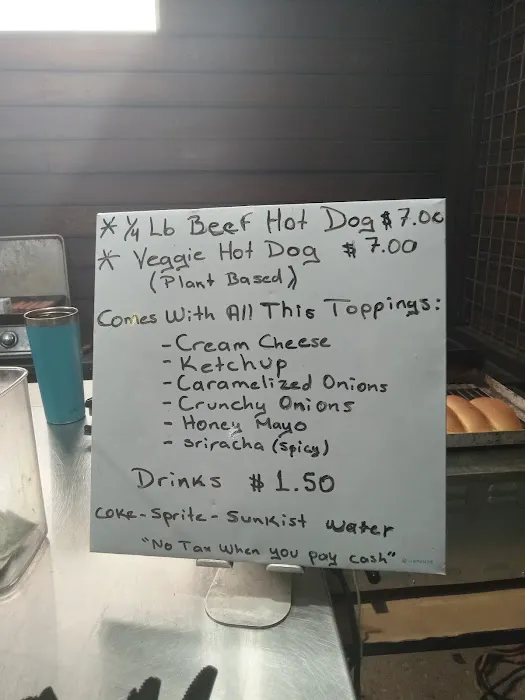 * 1/4 Lb Beef Hot Dog $7.00
* Veggie Hot Dog $7.00
(Plant Based)
Comes With All This Toppings:
- Cream Cheese
- Ketchup
- Caramelized Onions
- Crunchy Onions
- Honey Mayo
- sriracha (spicy)
Drinks $1.50
Coke - Sprite - Sunkist water
"No Tax When you pay cash"